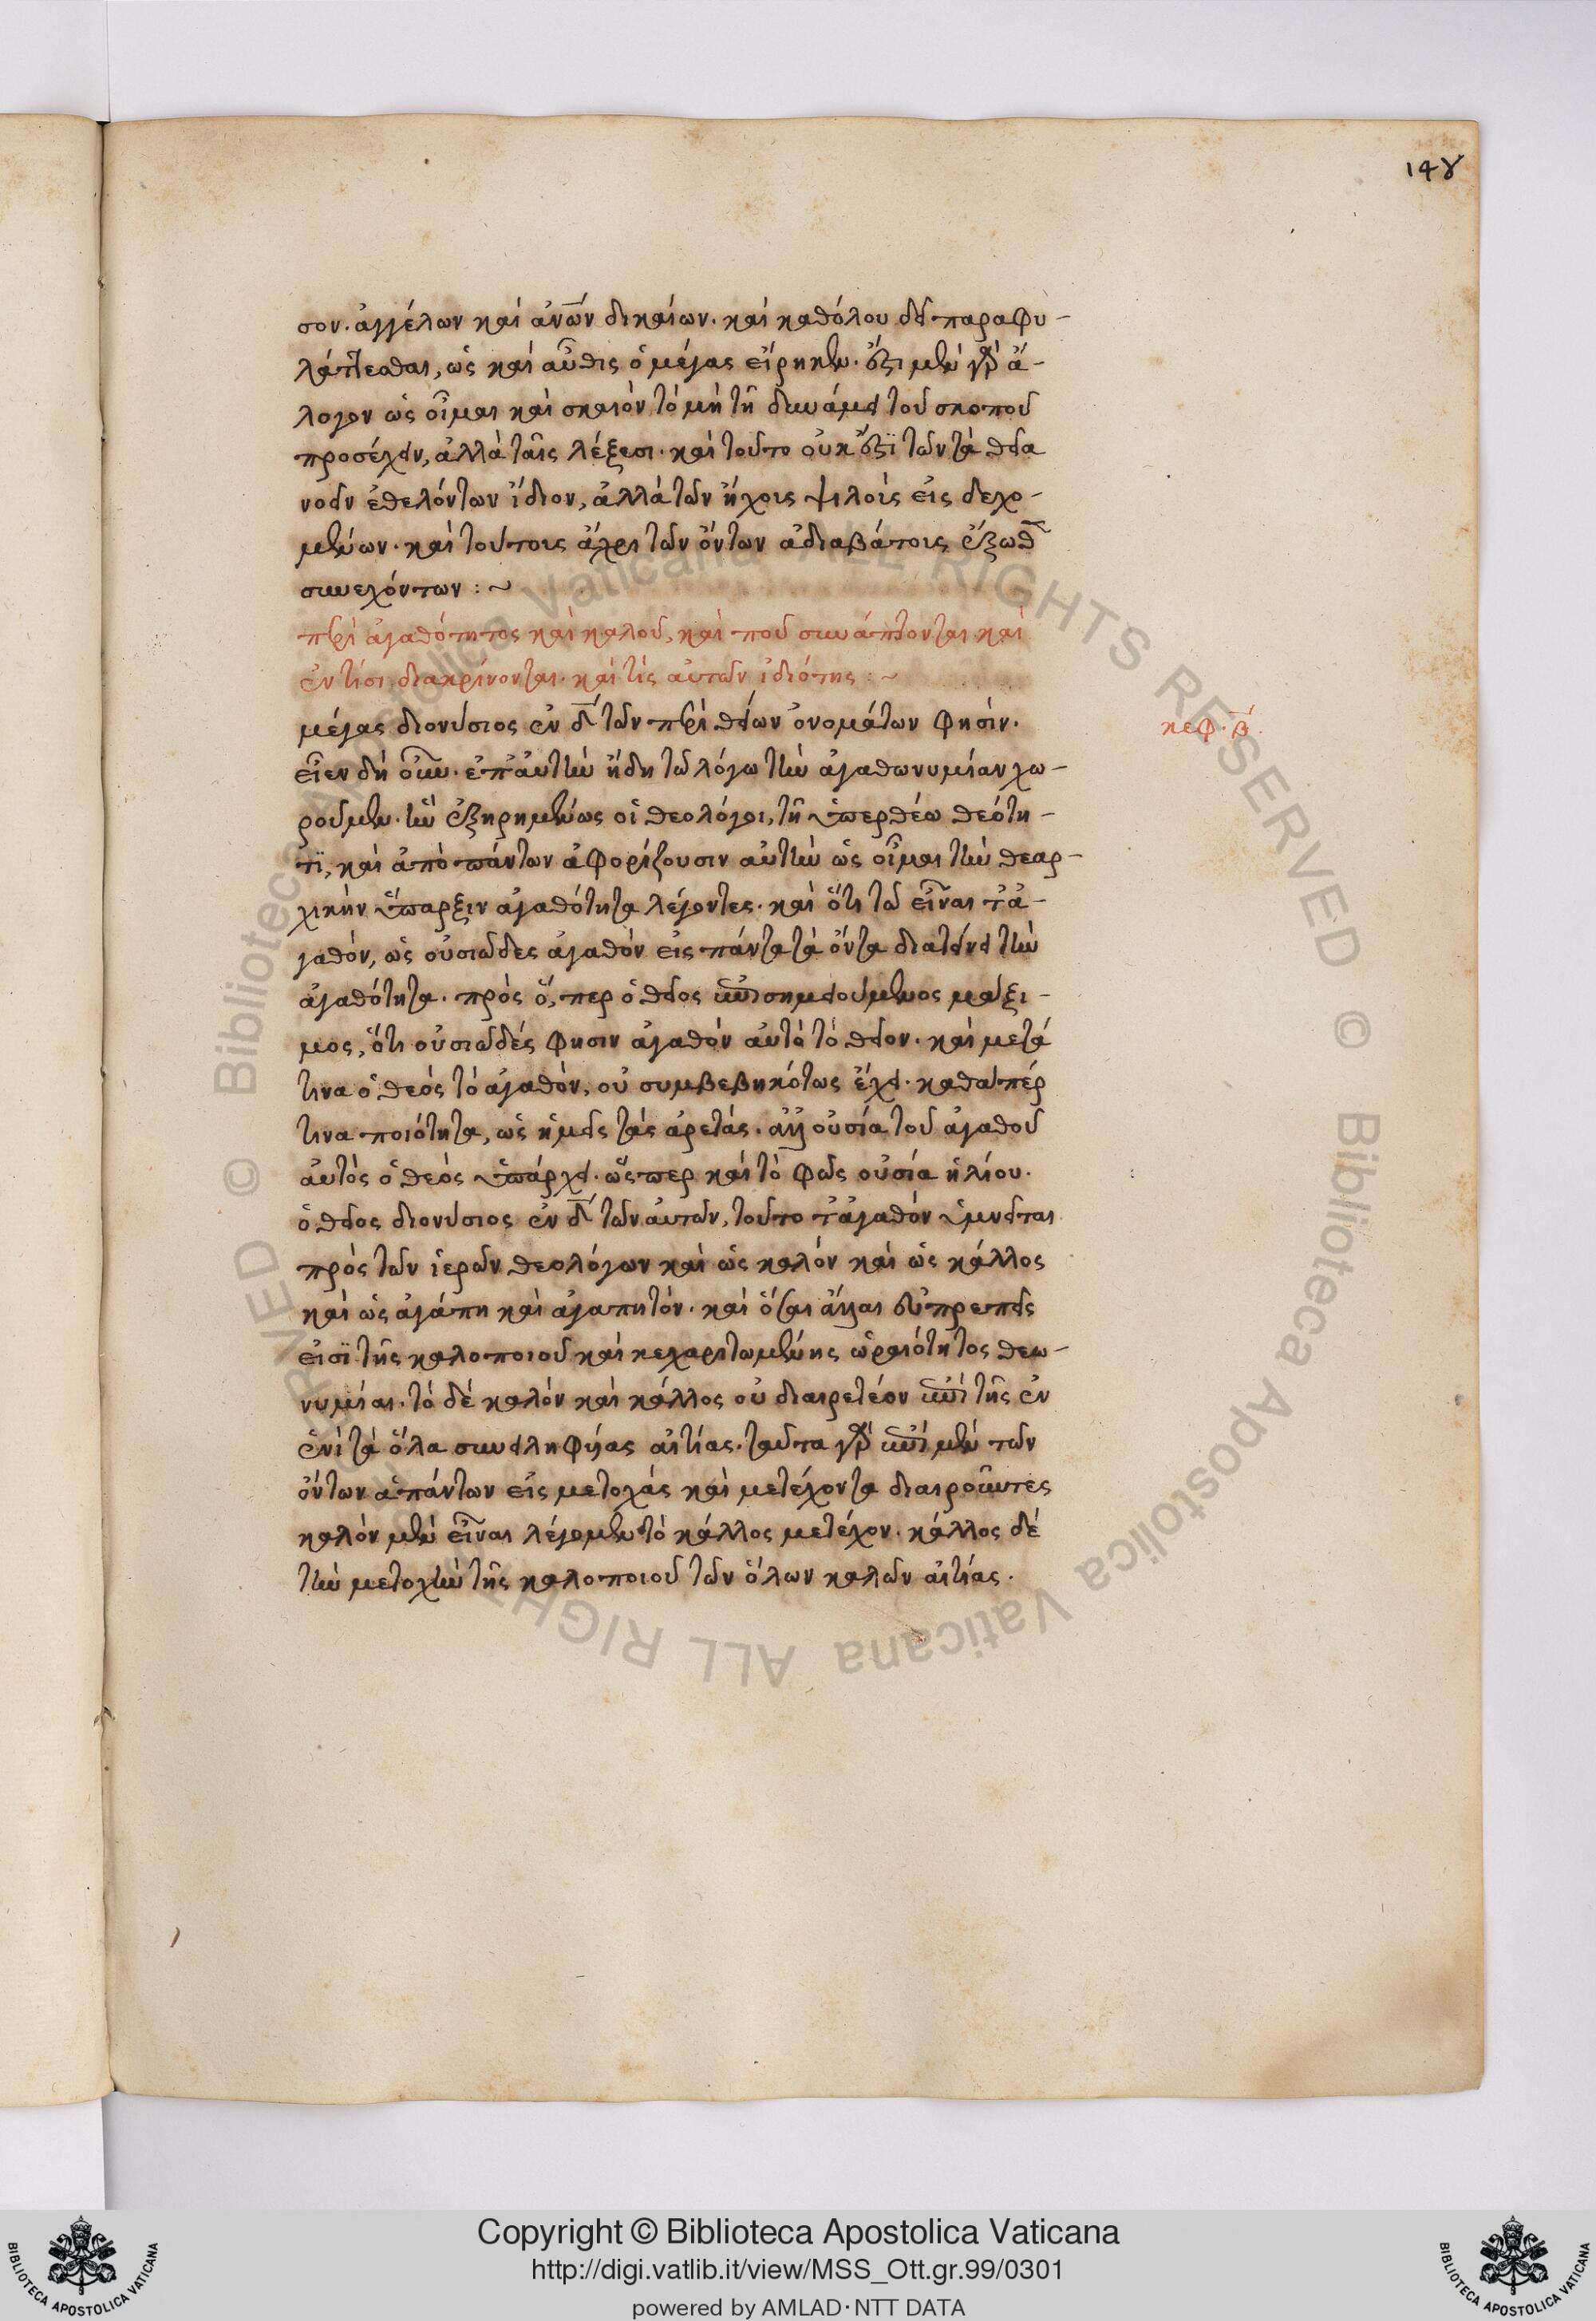 148
σον. ἀγγέλων καὶ ἀνῶν δικαίων. καὶ καθόλου δεῖ παραφυ-
λάττεσθαι, ὡς καὶ αὖθις ὁ μέγας εἴρηκεν. ἔστι μὲν γὰρ ἄ-
λογον ὡς οἶμαι καὶ σκαιὸν τὸ μὴ τῆ δυνάμει τοῦ σκοποῦ
προσέχειν, ἀλλὰ ταῖς λέξεσι. καὶ τοῦτο οὐκ ἔστϊ τῶν τὰ θεῖα
νοεῖν ἐθελόντων ἴδιον, ἀλλὰ τῶν ἤχους ψιλοὺς εἰς δεχο-
μένων. καὶ τούτους ἄχρι τῶν ὄντων ἀδιαβάτους ἔξωθ
συνεχόντων : ~
περὶ ἀγαθότητος καὶ καλοῦ, καὶ ποῦ συνάπτονται καὶ
ἐν τίσι διακρίνονται. καὶ τίς αὐτῶν ἰδιότης : ~
κεφ. β.
μέγας διονύσιος ἐν δ τῶν περὶ θείων ὀνομάτων φησίν.
εἶεν δὴ οὖν. ἐπ' αὐτὴν ἤδη τῶ λόγω τὴν ἀγαθωνυμίαν χω-
ροῦμεν. ἣν ἐξηρημένως οἱ θεολόγοι, τῆ ὑπερθέω θεότη-
τϊ, καὶ ἀπὸ πάντων ἀφορίζουσιν αὐτὴν ὡς οἶμαι τὴν θεαρ-
χικὴν ὕπαρξιν ἀγαθότητα λέγοντες. καὶ ὅτι τῶ εἶναι τἀ-
γαθόν, ὡς οὐσιῶδες ἀγαθὸν εἰς πάντα τὰ ὄντα διατείνει τὴν
ἀγαθότητα. πρὸς ὅ, περ ὁ θεῖος ἐπισημειούμενος μάξι-
μος, ὅτι οὐσιῶδές φησιν ἀγαθὸν αὐτὸ τὸ θεῖον. καὶ μετά
τινα ὁ θεὸς τὸ ἀγαθόν, οὐ συμβεβηκότως ἔχει. καθαπέρ
τινα ποιότητα, ὡς ἡμεῖς τὰς ἀρετάς. ἀλλ οὐσία τοῦ ἀγαθοῦ
αὐτὸς ὁ θεὸς ὑπάρχει. ὥσπερ καὶ τὸ φῶς οὐσία ἡλίου.
ὁ θεῖος διονύσιος ἐν δ τῶν αὐτῶν, τοῦτο τἀγαθὸν ὑμνεῖται
πρὸς τῶν ἱερῶν θεολόγων καὶ ὡς καλὸν καὶ ὡς κάλλος
καὶ ὡς ἀγάπη καὶ ἀγαπητόν. καὶ ὅσαι ἄλλαι εὐπρεπεῖς
εἰσϊ τῆς καλοποιοῦ καὶ κεχαριτωμένης ὡραιότητος θεω-
νυμίαι. τὸ δὲ καλὸν καὶ κάλλος οὐ διαιρετέον ἐπὶ τῆς ἐν
ἑνὶ τὰ ὅλα συνειληφυίας αἰτίας. ταῦτα γὰρ ἐπὶ μὲν τῶν
ὄντων ἁπάντων εἰς μετοχὰς καὶ μετέχοντα διαιροῦντες
καλὸν μὲν εἶναι λέγομεν τὸ κάλλος μετέχον. κάλλος δὲ
τὴν μετοχὴν τῆς καλοποιοῦ τῶν ὅλων καλῶν αἰτίας.
Copyright © Biblioteca Apostolica Vaticana
http://digi.vatlib.it/view/MSS_Ott.gr.99/0301
powered by AMLAD·NTT DATA